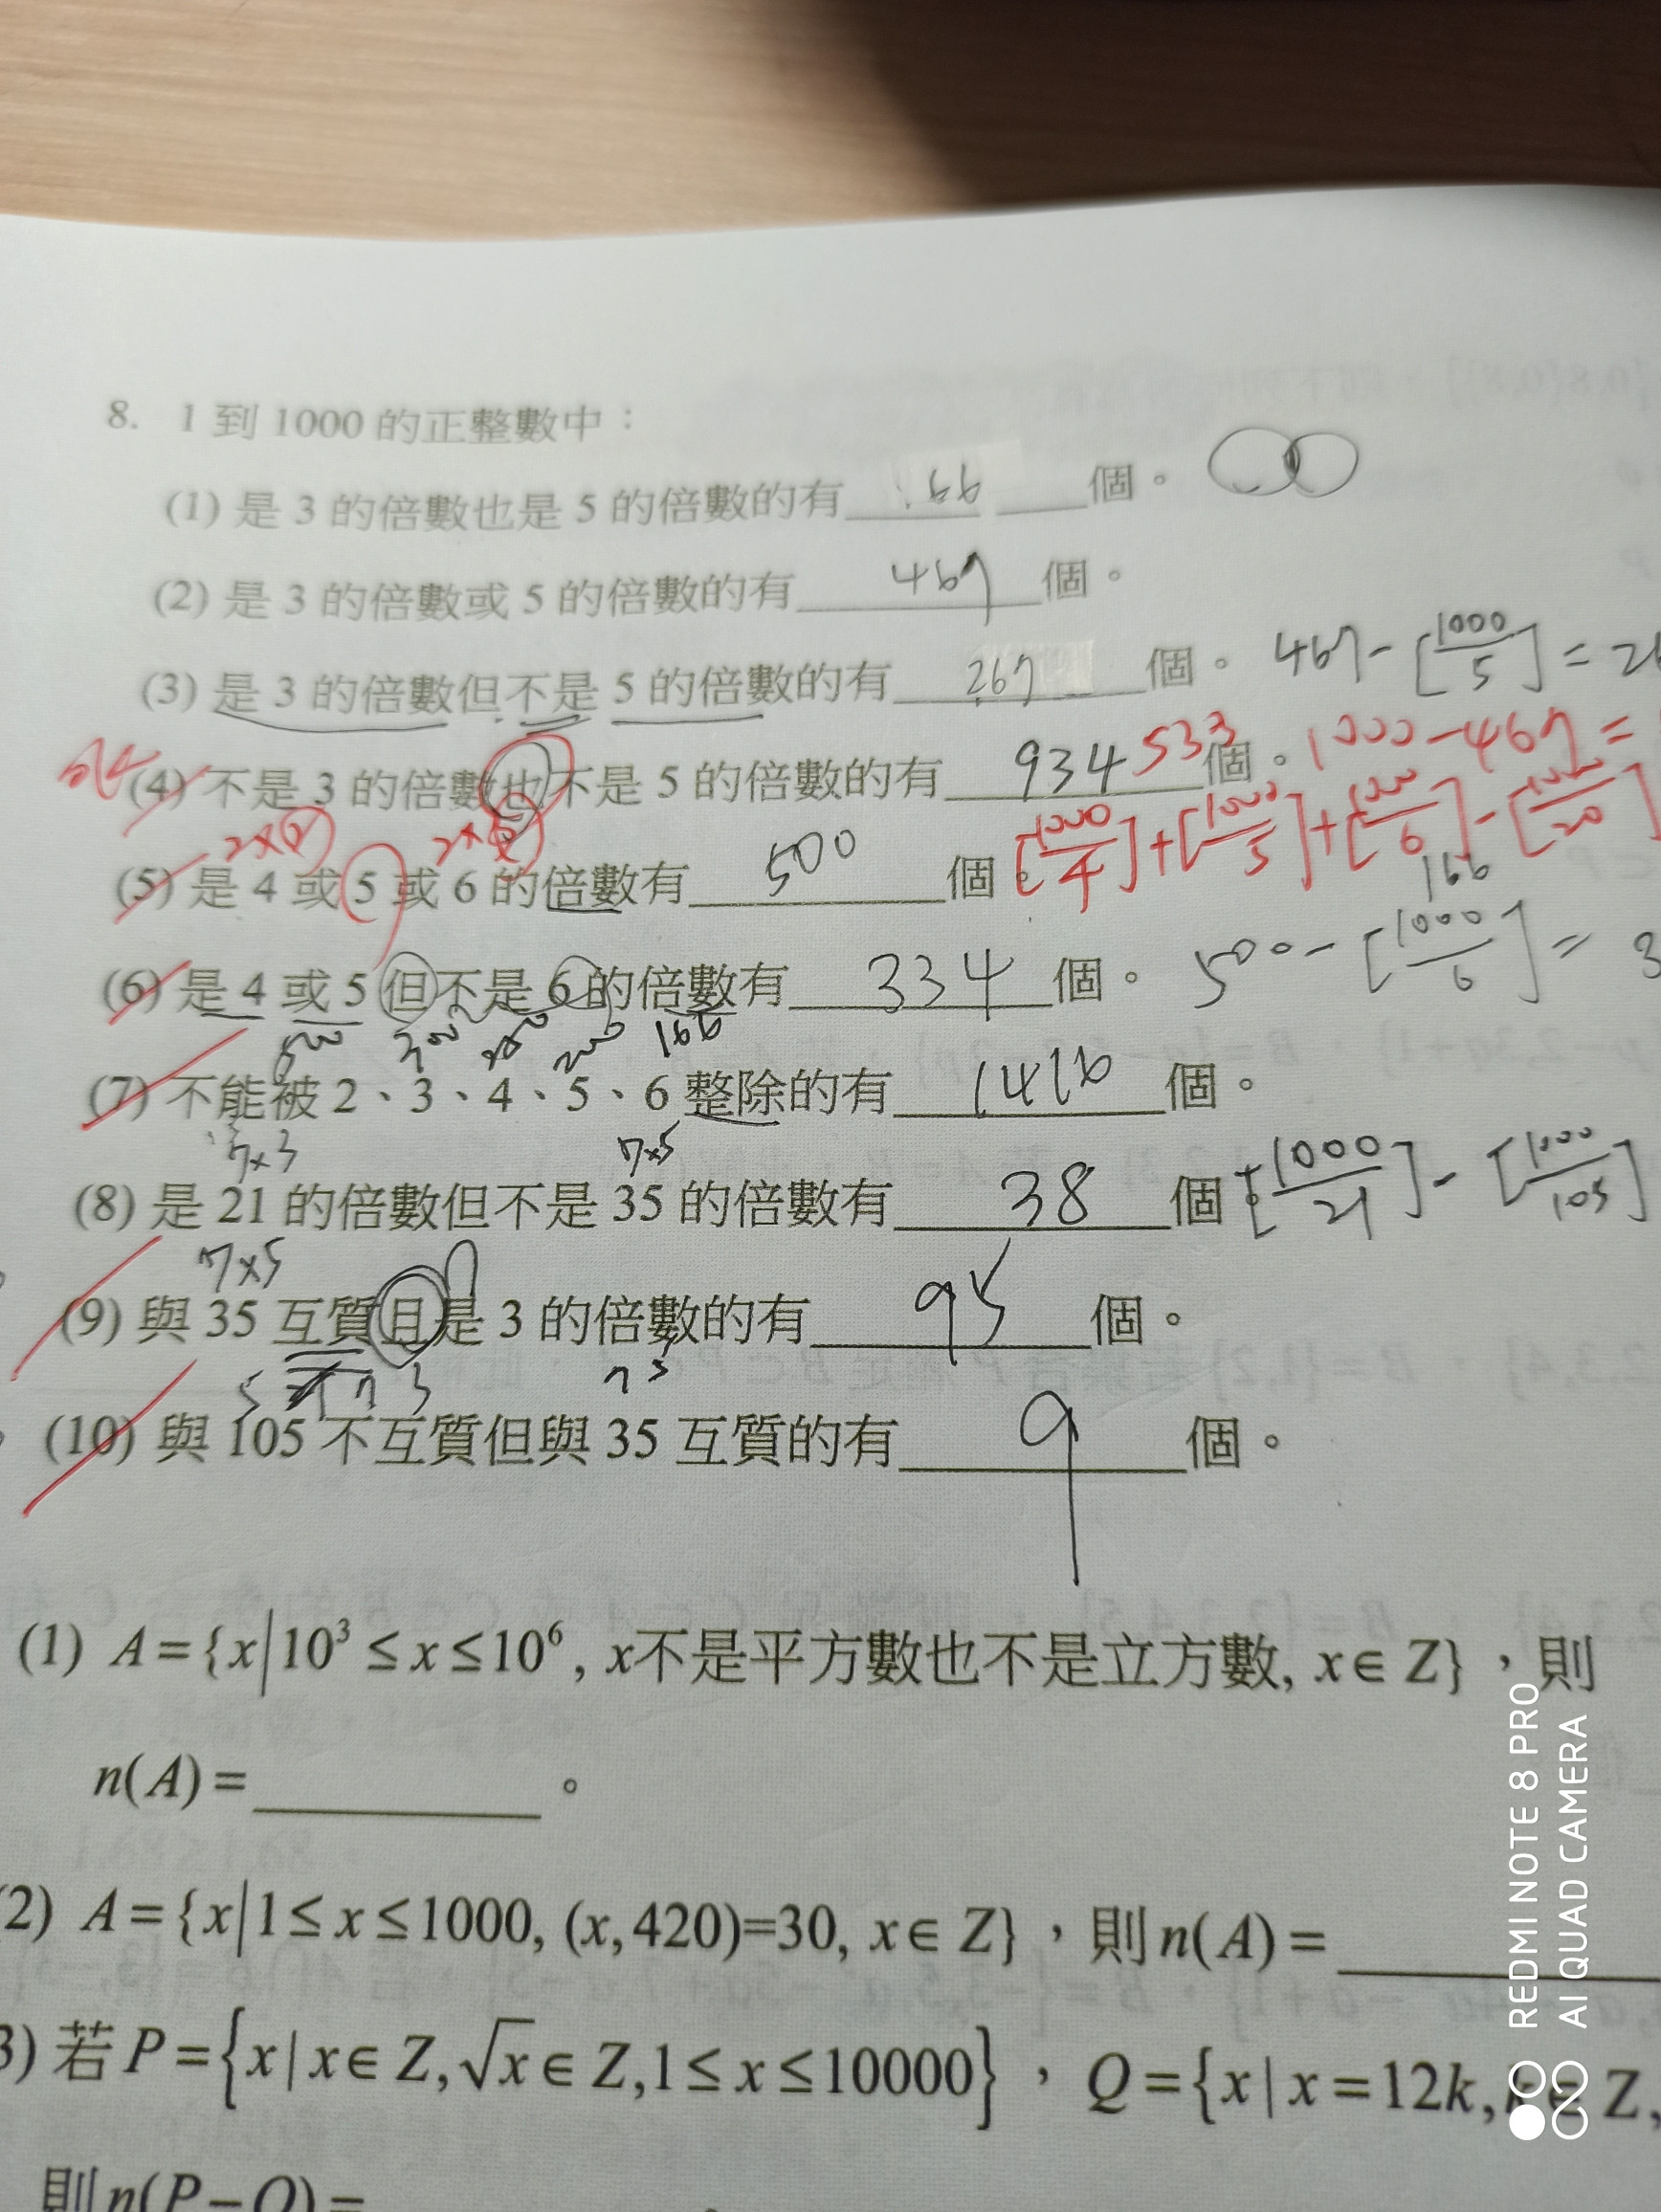 8. 1 到 1000 的正整數中：
(1) 是 3 的倍數也是 5 的倍數的有 66 個。
(2) 是 3 的倍數或 5 的倍數的有 467 個。
(3) 是 3 的倍數但不是 5 的倍數的有 267 個。 467-[1000/5]=26
(4) 不是 3 的倍數也不是 5 的倍數的有 934 533 個。 1000-467=
2×② 2×
(5) 是 4 或 5 或 6 的倍數有 500 個。 [1000/4]+[1000/5]+[1000/6]-[1000/20]
166
(6) 是 4 或 5 但不是 6 的倍數有 334 個。 500-[1000/6]=3
500 200 166
(7) 不能被 2、3、4、5、6 整除的有 1416 個。
7×3 7×5
(8) 是 21 的倍數但不是 35 的倍數有 38 個。 [1000/21]-[1000/105]
7×5
(9) 與 35 互質且是 3 的倍數的有 95 個。
5 7 3 7 5
(10) 與 105 不互質但與 35 互質的有 9 個。
(1) A={x|10³≤x≤10⁶, x不是平方數也不是立方數, x∈Z}，則
n(A)=______。
2) A={x|1≤x≤1000, (x,420)=30, x∈Z}，則n(A)=______
3) 若P={x|x∈Z,√x∈Z,1≤x≤10000}，Q={x|x=12k,k∈Z,
則n(P-Q)=
REDMI NOTE 8 PRO
AI QUAD CAMERA